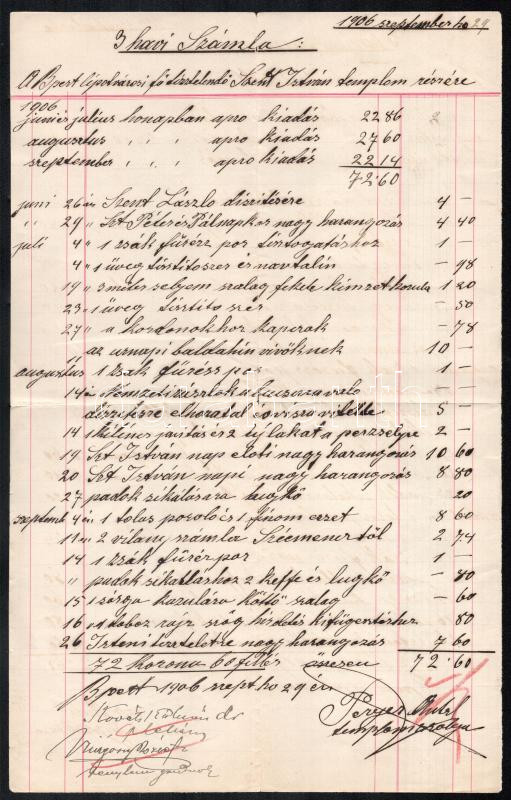 1906 szeptember hó 29
3 havi Számla:
A Bpest lipótvárosi főtisztelendő Szent István templom részére
1906
junius július honapban apro kiadás 22 86
augusztus " " apro kiadás 27 60
szeptember " " apro kiadás 22 14
72.60
juni 26 án Szent László diszitésére 4 —
" 29 " Szt Péter és Pálnapkor nagy harangozás 4 40
juli 4 " 1 zsák fürész por tisztogatáshoz 1 —
4 " 1 üveg tisztitoszer és navtalin — 98
19 " 3 méter selyem szalag fekete 1 20
23 " 1 üveg tisztito szer — 50
27 " a kordonokhoz kaprok — 78
" az urnapi baldahin vivöknek 10 —
augustus " 1 zsák fürész por 1 —
14 én Nemzeti zászlok a —
diszitésre elhozatal és vissza vitele 5 —
14 1 kilincs javitás és 2 uj lakat a perzselyre 2 —
19 Szt István nap elöti nagy harangozás 10 60
20 Szt István napi nagy harangozás 8 80
27 padok sikálására lugkő 20
szeptemb 4 én 1 tolas poroló és 1 finom ecset 8 60
11 én 2 villany számla től 2 74
14 1 zsák fürész por 1 —
" padok sikálláshoz 2 keffe és lugkő — 80
15 1 sárga kazulára kötő szalag — 60
16 a doboz rajz szög hirdetés kifügentéshez 80
26 Isteni tiszteletre nagy harangozás 7 60
72 korona 60 fillér összesen 72.60
Bpest 1906 szept hó 29 én
Kováts Kálmán dr
plébános
templom gondnok
templomszolga